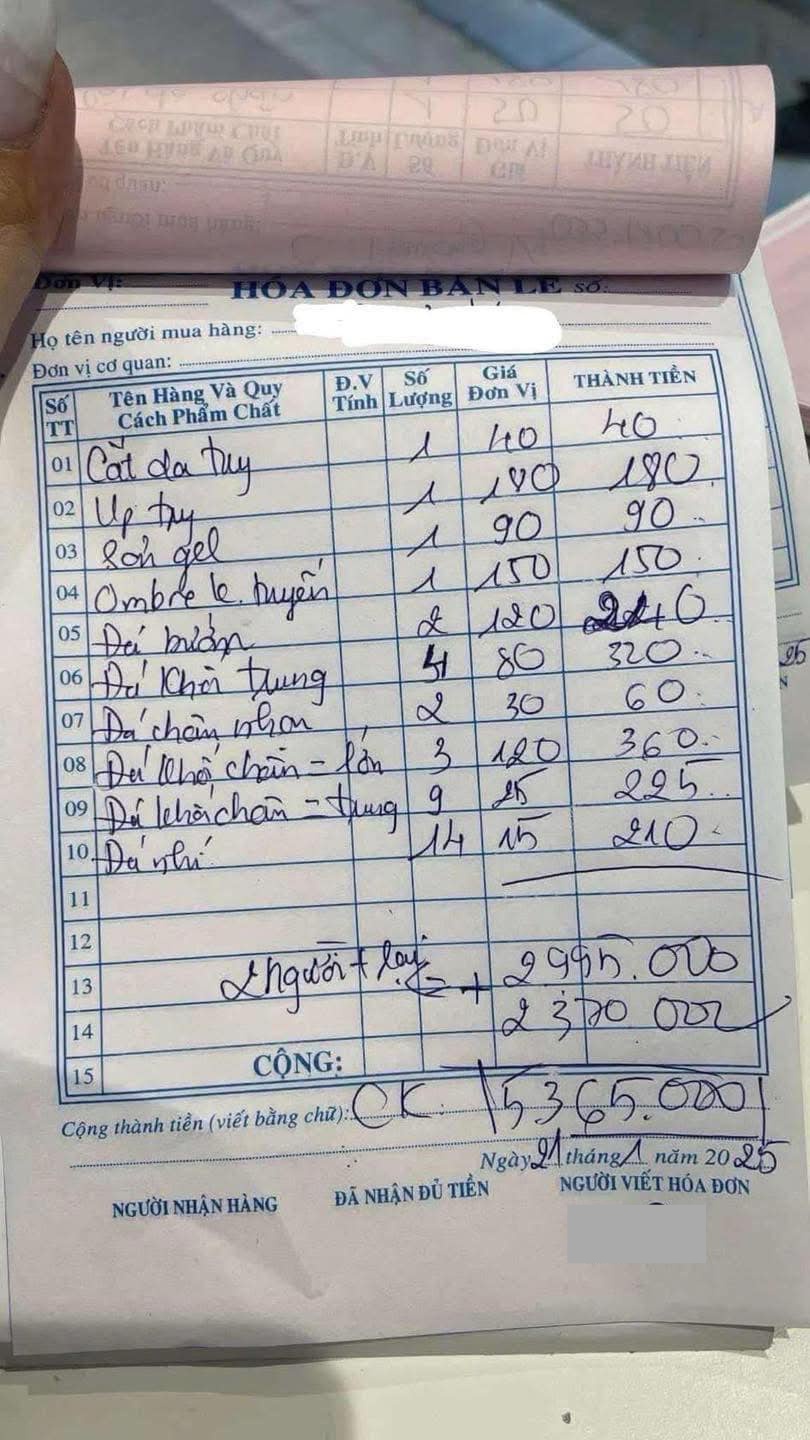 Đơn Vị:
HÓA ĐƠN BÁN LẺ Số:
Họ tên người mua hàng:
Đơn vị cơ quan:
Số TT Tên Hàng Và Quy Cách Phẩm Chất Đ.V Tính Số Lượng Giá Đơn Vị THÀNH TIỀN
01 Cắt da tay 1 40 40
02 Úp tay 1 180 180
03 Sơn gel 1 90 90
04 Ombre 1 150 150
05 Đá 2 120 240
06 Đá khối trung 4 80 320
07 Đá chân nhọn 2 30 60
08 Đá khối chân = lớn 3 120 360
09 Đá khối chân = trung 9 25 225
10 Đá nhí 14 15 210
11
12
13 2 người + lại = + 2995.000
14 2370 000
15 CỘNG:
Cộng thành tiền (viết bằng chữ): CK. 5365.000
Ngày 21 tháng 1 năm 2025
NGƯỜI NHẬN HÀNG ĐÃ NHẬN ĐỦ TIỀN NGƯỜI VIẾT HÓA ĐƠN